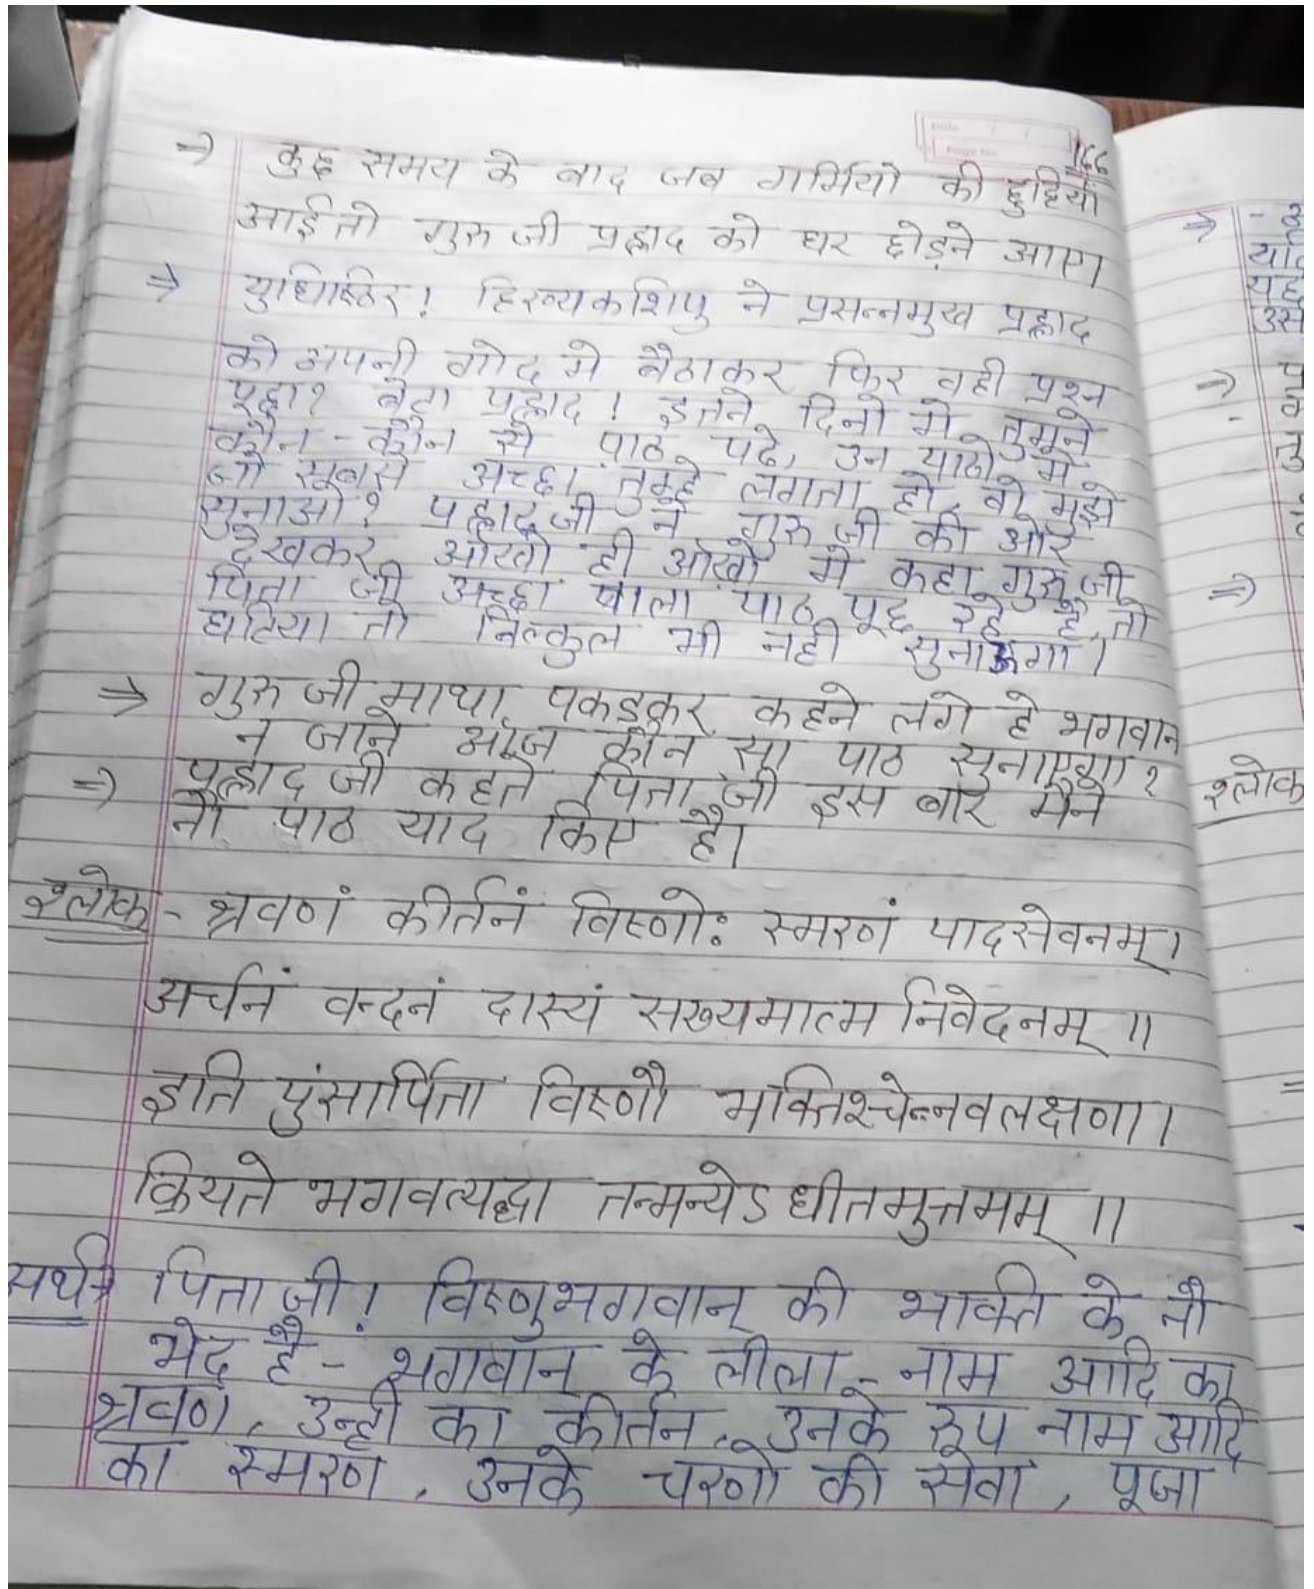 166
⇒ कुछ समय के बाद जब गर्मियो की छुट्टियाँ
आई तो गुरु जी प्रह्लाद को घर छोड़ने आए।
⇒ युधिष्ठिर! हिरण्यकशिपु ने प्रसन्नमुख प्रह्लाद
को अपनी गोद मे बैठाकर फिर वही प्रश्न
पूछा? बेटा प्रह्लाद! इतने दिनो मे तुमने
कौन-कौन से पाठ पढे, उन पाठो में
जो सबसे अच्छा तुम्हे लगता हो, वो मुझे
सुनाओ? प्रह्लाद जी ने गुरु जी की ओर
देखकर आँखो ही आँखो में कहा गुरु जी
पिता जी अच्छा वाला पाठ पूछ रहे है, तो
घटिया तो बिल्कुल भी नही सुनाऊगा।
⇒ गुरु जी माथा पकडकर कहने लगे हे भगवान
न जाने आज कौन सा पाठ सुनाएगा?
⇒ प्रह्लाद जी कहते पिता जी इस बार मैने
नौ पाठ याद किए है।
श्लोक - श्रवणं कीर्तनं विष्णोः स्मरणं पादसेवनम्।
अर्चनं वन्दनं दास्यं सख्यमात्म निवेदनम् ॥
इति पुंसार्पिता विष्णौ भक्तिश्चेन्नवलक्षणा।
क्रियते भगवत्यद्धा तन्मन्येऽधीतमुत्तमम् ॥
पिता जी! विष्णुभगवान् की भक्ति के नौ
भेद है - भगवान् के लीला - नाम आदि का
श्रवण, उन्ही का कीर्तन, उनके रूप नाम आदि
का स्मरण, उनके चरणो की सेवा, पूजा
⇒
⇒
⇒
श्लोक